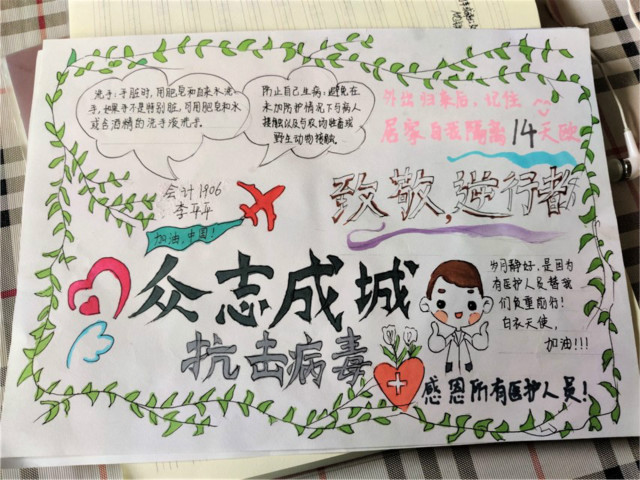 洗手：手脏时，用肥皂和自来水洗
手，如果手不是特别脏，可用肥皂和水
或含酒精的洗手液洗手。
防止自己生病：避免在
未加防护情况下与病人
接触以及与农场牲畜或
野生动物接触
外出归来后，记住
居家自我隔离14天哦
会计1906
李平平
致敬，逆行者
加油，中国！
众志成城
抗击病毒
岁月静好，是因为
有医护人员替我
们负重前行！
白衣天使，
加油!!!
感恩所有医护人员！